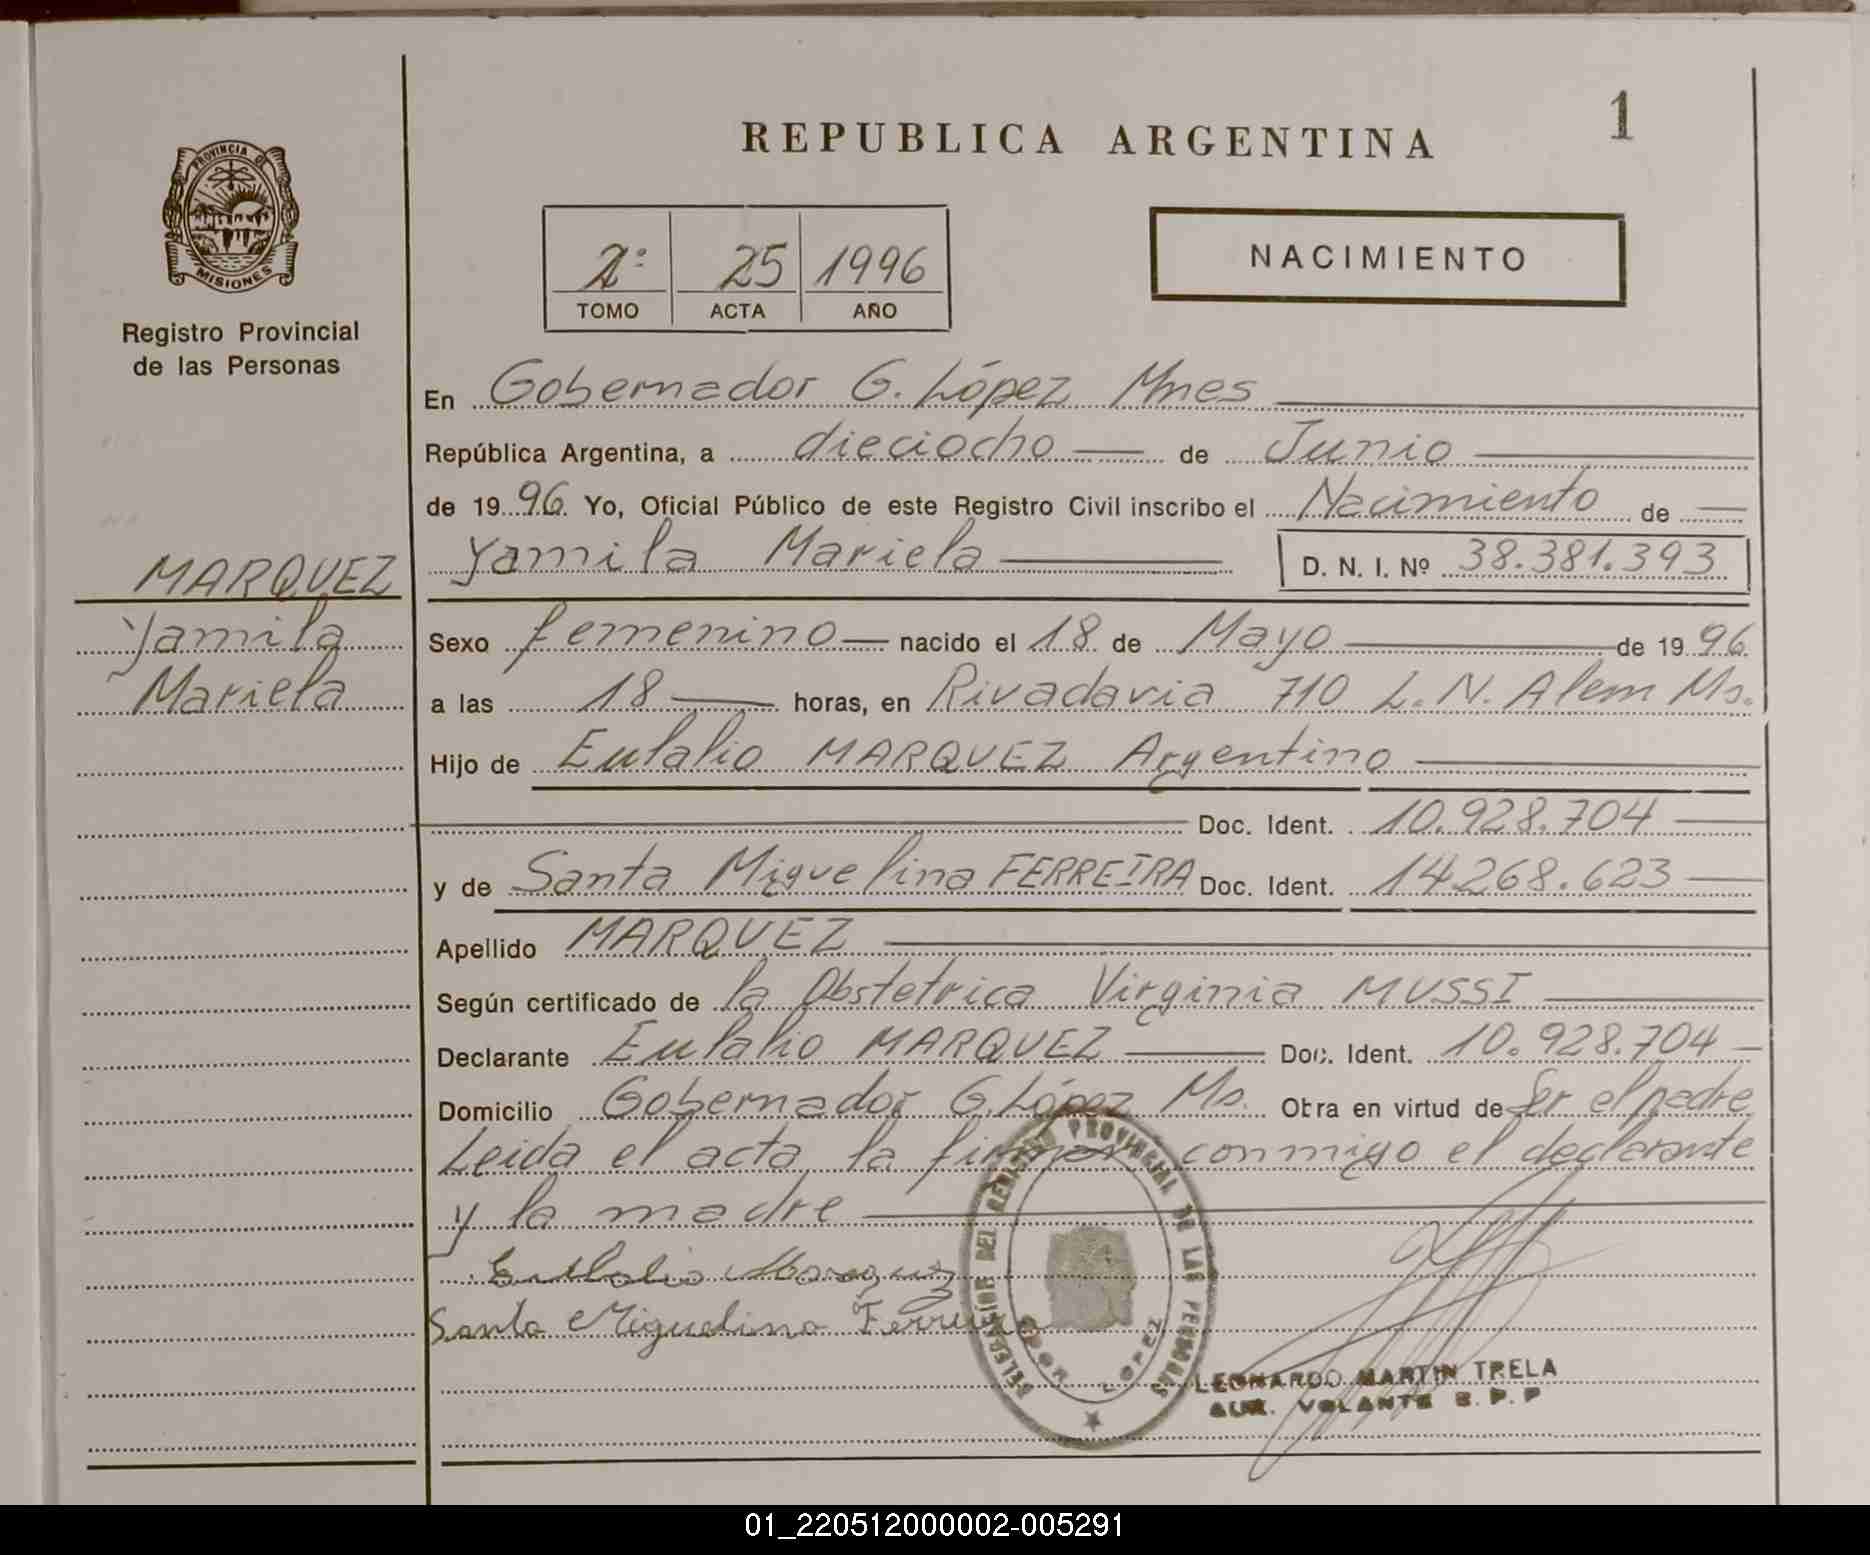 REPUBLICA ARGENTINA
1
PROVINCIA DE
MISIONES
Registro Provincial
de las Personas
2º 25 1996
TOMO ACTA AÑO
NACIMIENTO
En Gobernador G. López Mnes
República Argentina, a dieciocho de Junio
de 1996 Yo, Oficial Público de este Registro Civil inscribo el Nacimiento de
Yamila Mariela D. N. I. Nº 38.381.393
MARQUEZ
Yamila
Mariela
Sexo femenino nacido el 18 de Mayo de 1996
a las 18 horas, en Rivadavia 710 L. N. Alem Ms.
Hijo de Eulalio MARQUEZ Argentino
Doc. Ident. 10.928.704
y de Santa Miguelina FERREIRA Doc. Ident. 14.268.623
Apellido MARQUEZ
Según certificado de la Obstetrica Virginia MUSSI
Declarante Eulalio MARQUEZ Doc. Ident. 10.928.704
Domicilio Gobernador G. López Ms. Obra en virtud de Ser el padre
Leida el acta la firman conmigo el declarante
y la madre
Eulalio Marquez
Santa Miguelina Ferreira
DELEGACIÓN DEL REGISTRO PROVINCIAL DE LAS PERSONAS
LOPEZ
LEONARDO MARTIN TRELA
AUX. VOLANTE R. P. P
01_220512000002-005291